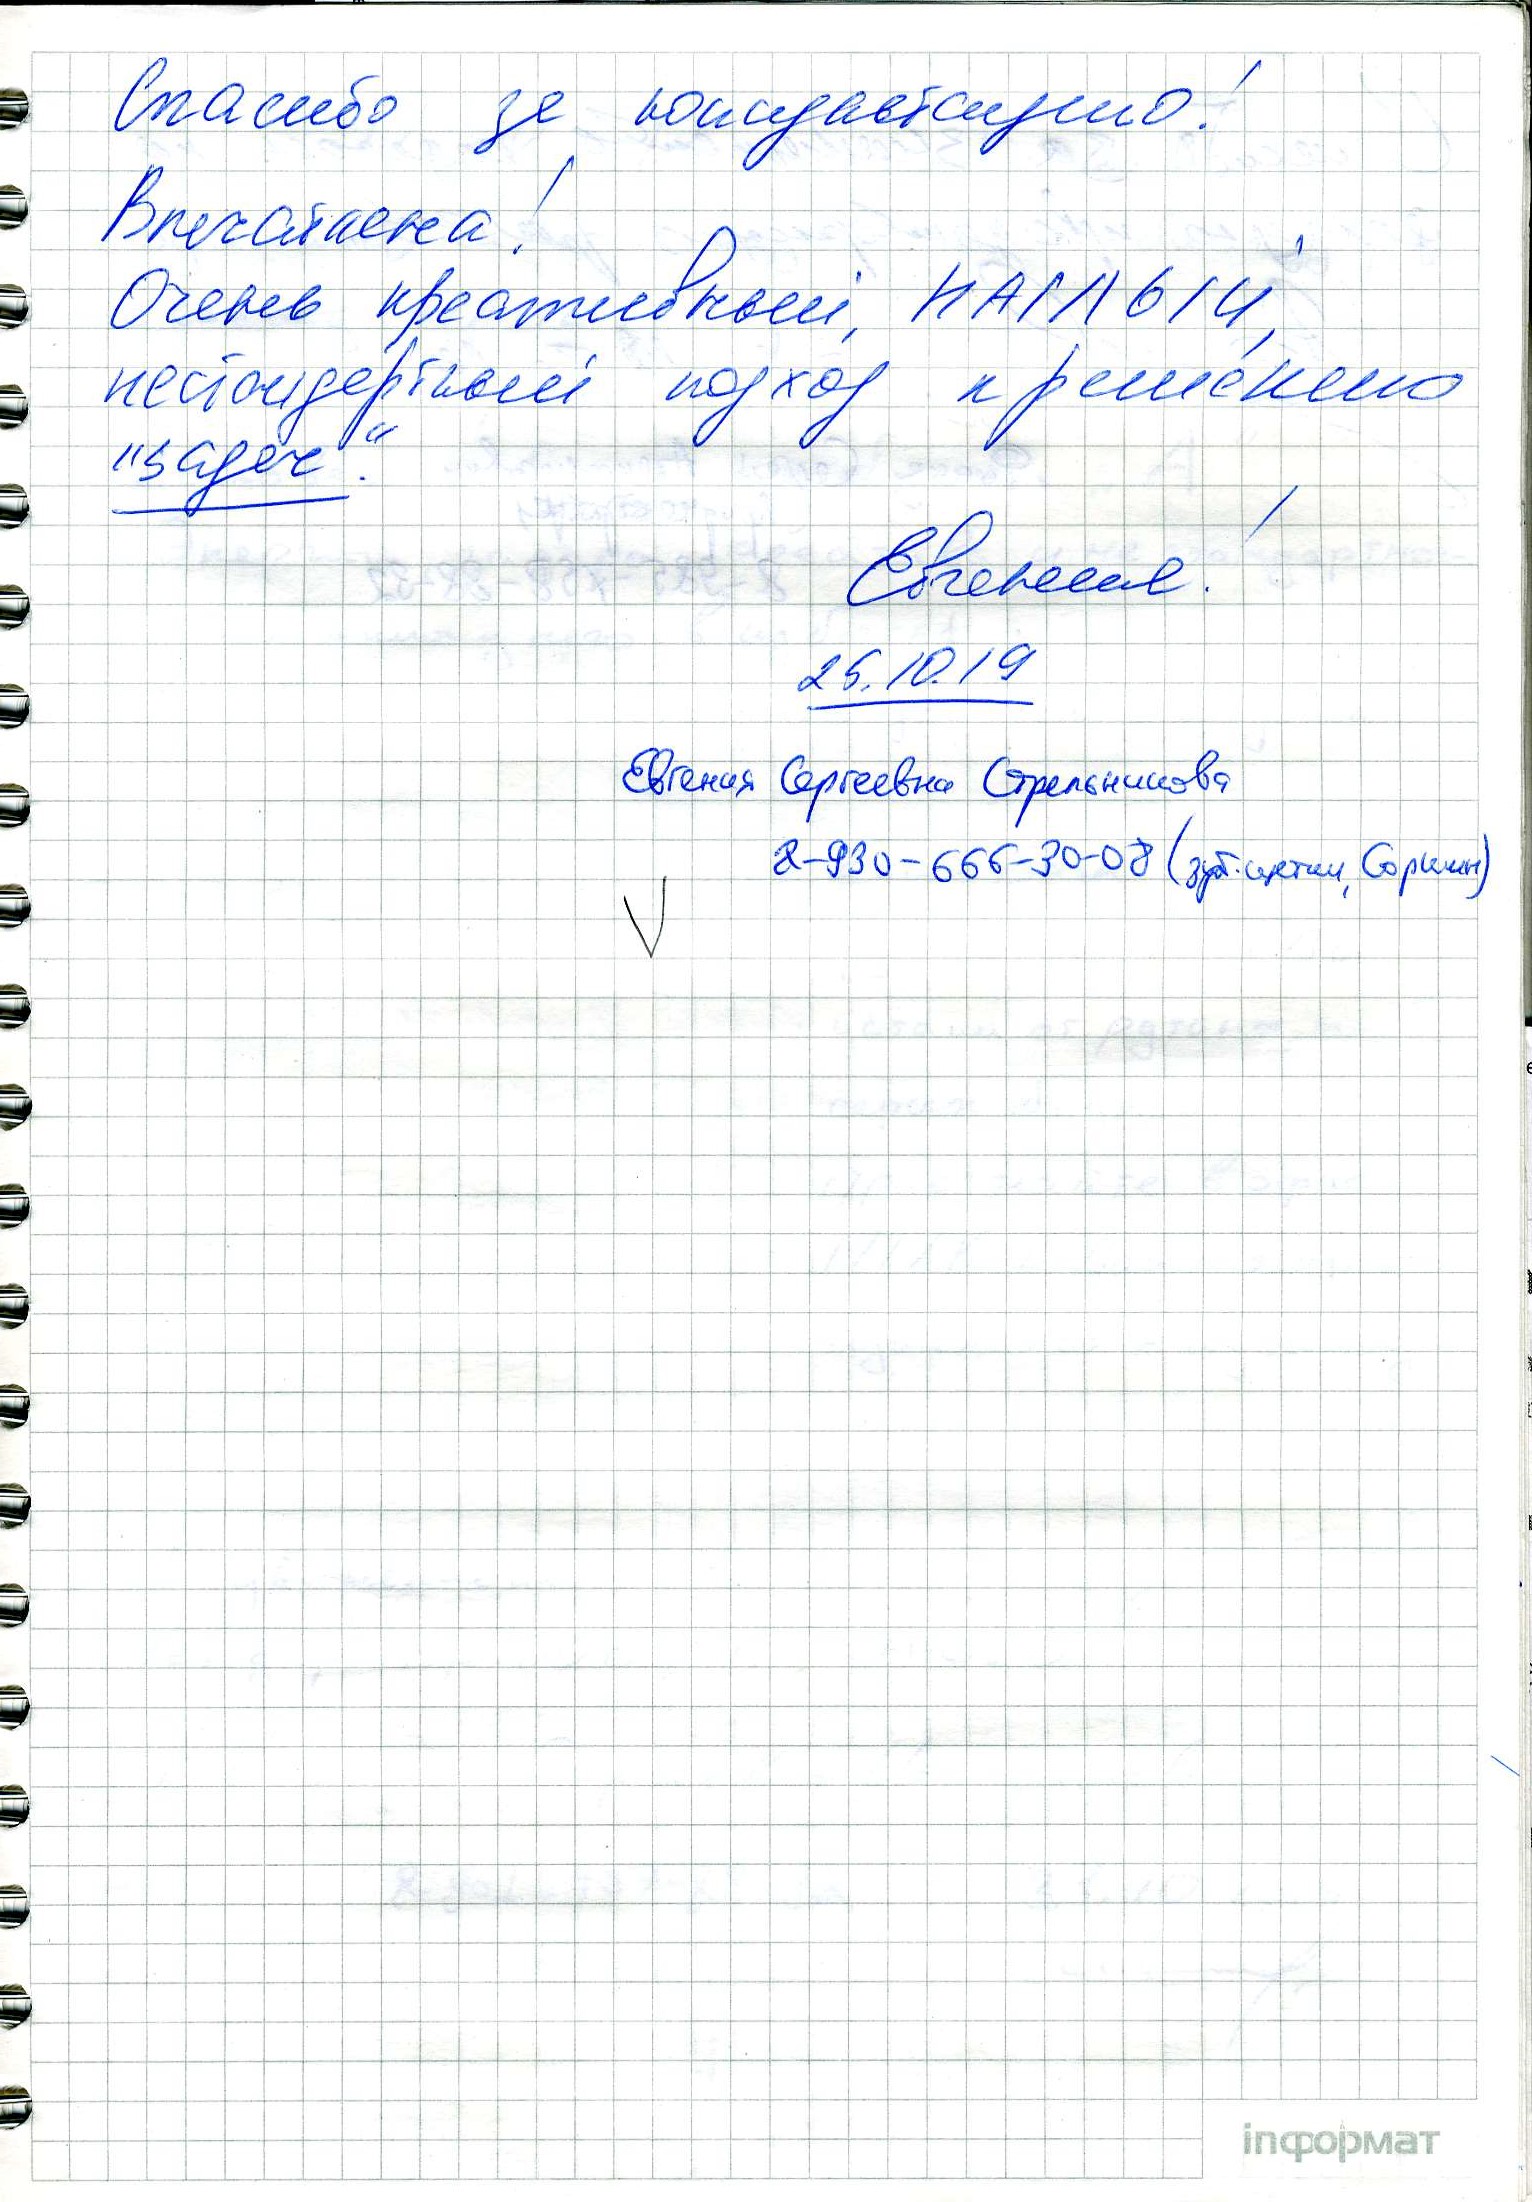 Спасибо за консультацию!
Впечатлена!
Очень креативный, НАГЛЫЙ,
нестандартный подход к решению
"задач".
Евгения!
25.10.19
Евгения Сергеевна Стрельникова
8-930-666-30-08 (зуб. щетки, Соркин)
V
inформат